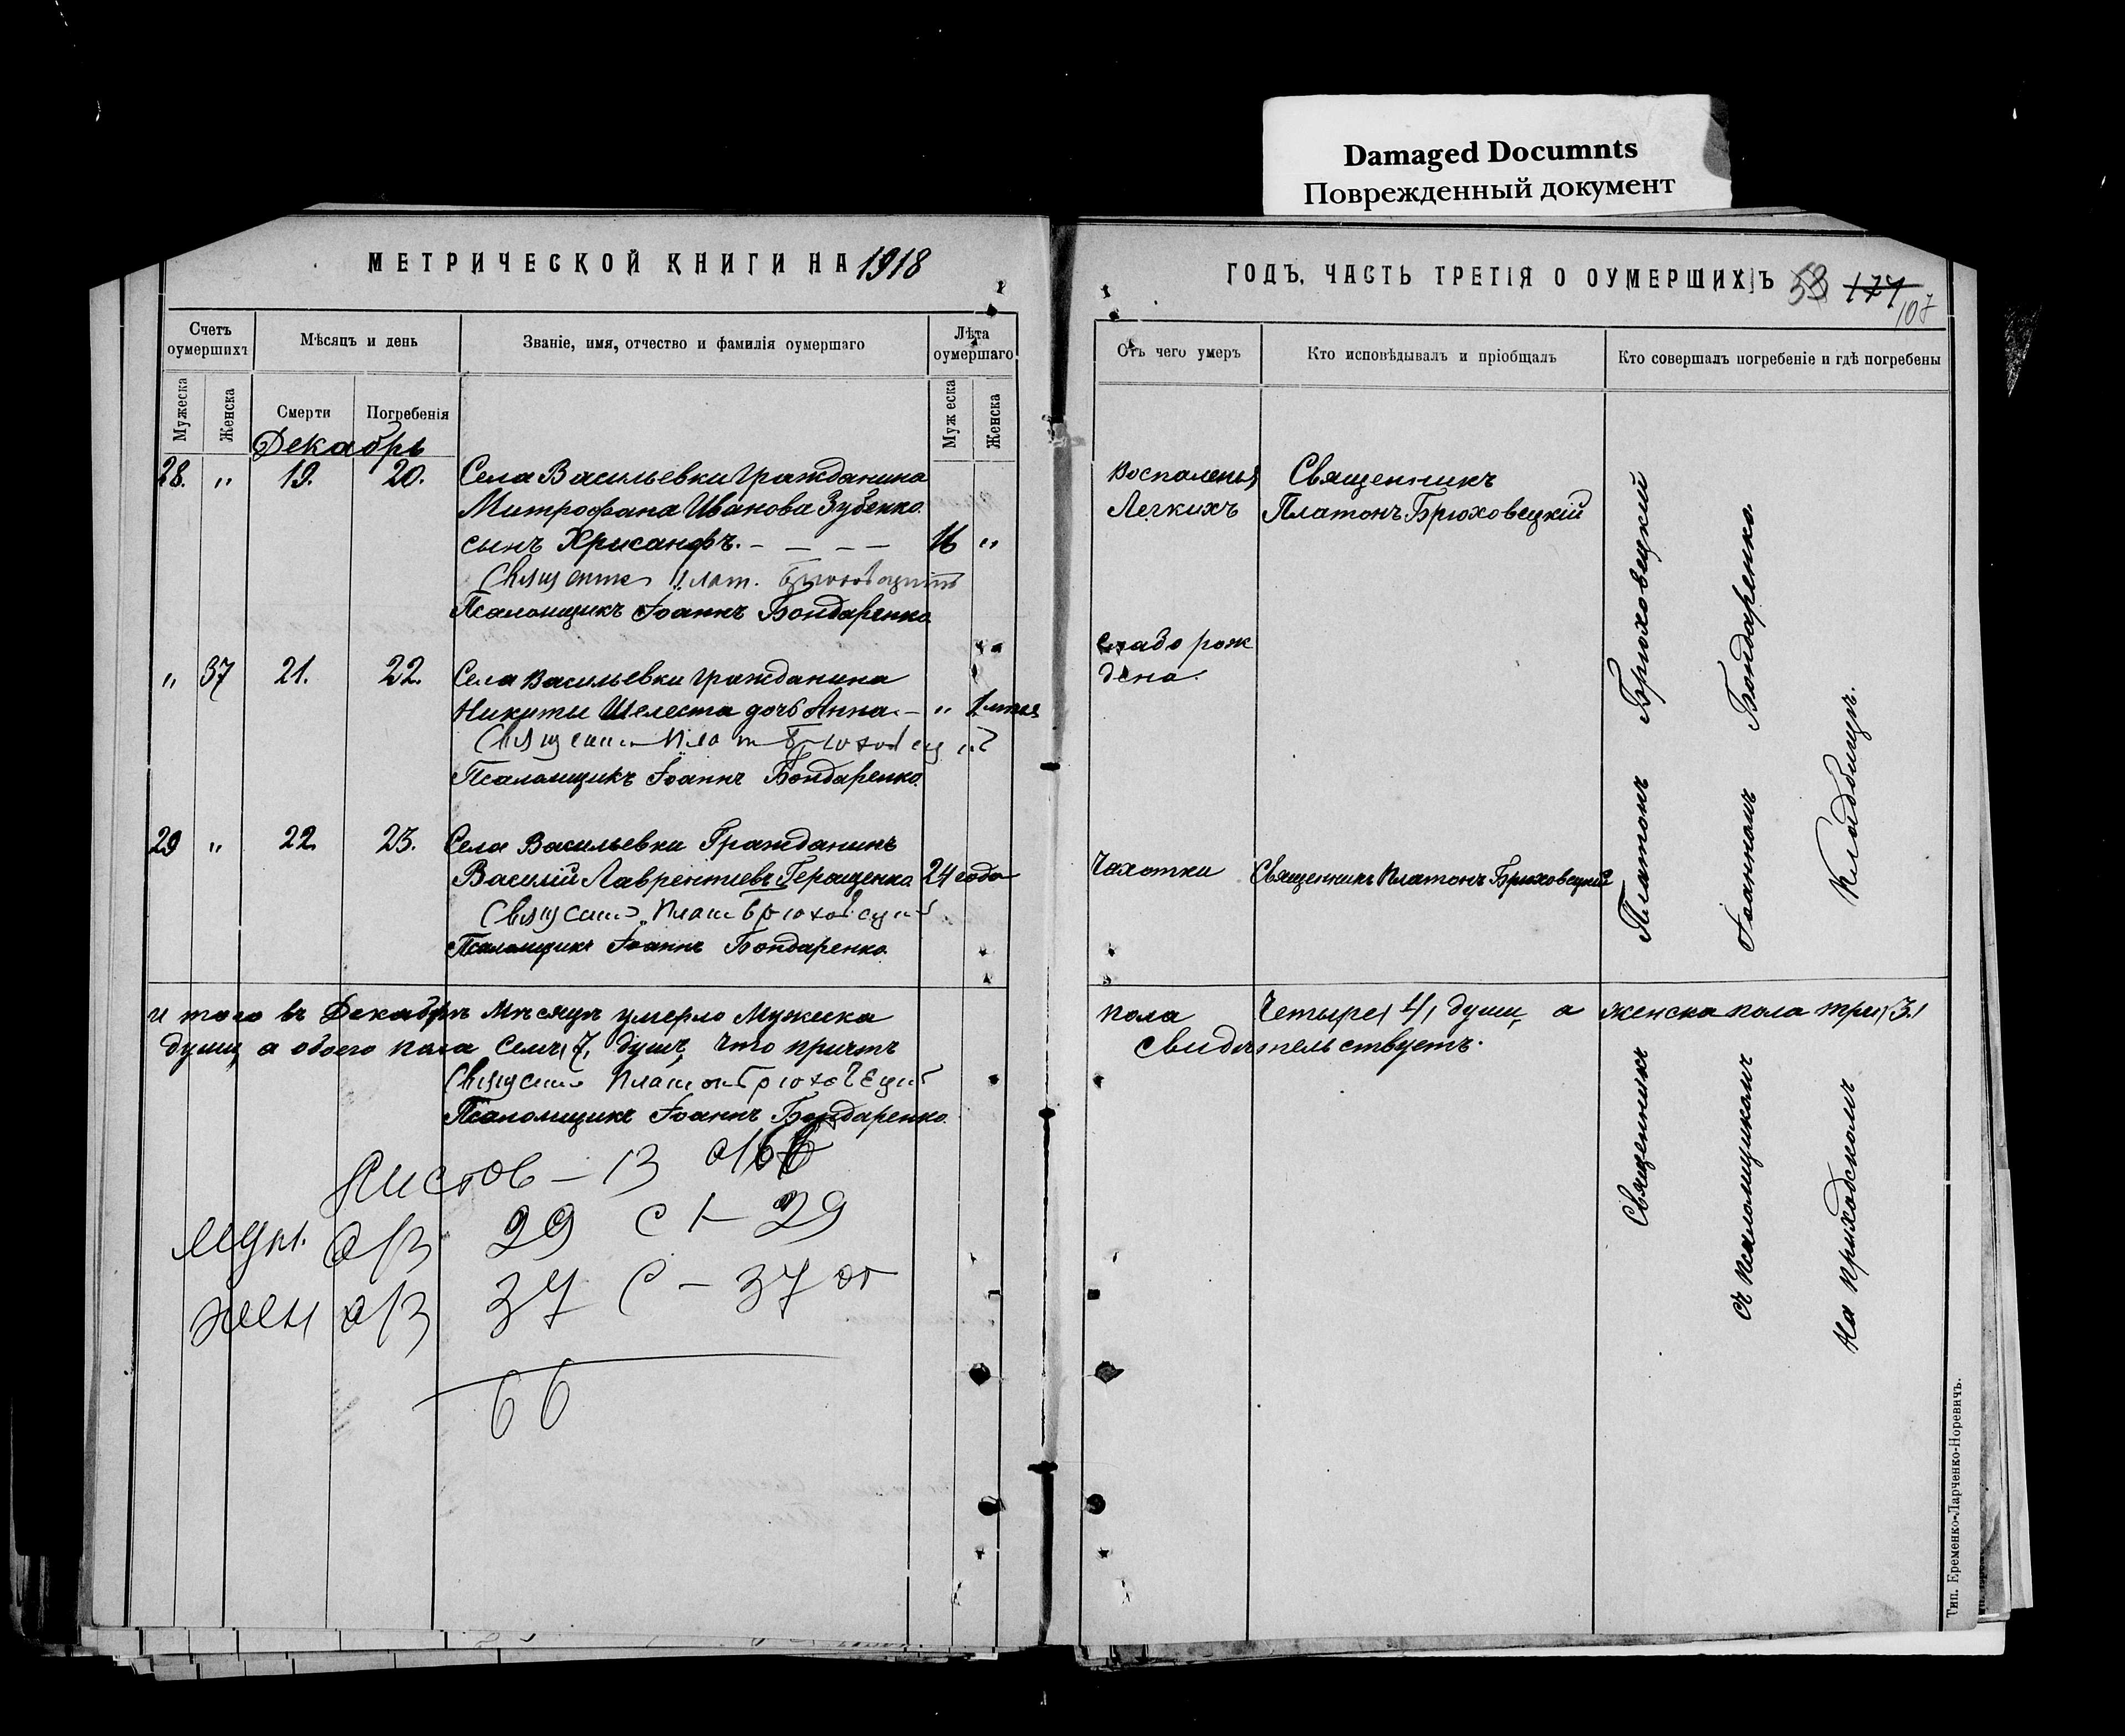 Damaged Documnts
Поврежденный документ
МЕТРИЧЕСКОЙ КНИГИ НА 1918
ГОДЪ, ЧАСТЬ ТРЕТІЯ О ОУМЕРШИХЪ 58 171
107
Счетъ оумершихъ
Мѣсяцъ и день
Званіе, имя, отчество и фамилія оумершаго
Лѣта оумершаго
Отъ чего умеръ
Кто исповѣдывалъ и пріобщалъ
Кто совершалъ погребеніе и гдѣ погребены
Мужеска
Женска
Смерти
Погребенія
Муж еска
Женска
Декабрь
28. " 19. 20. Села Васильевки гражданина
Митрофана Иванова Зубенко
сынъ Хрисанфъ. - - - - 16 "
Воспаленья
Легкихъ
Священникъ
Платонъ Брюховецкій
Псаломщикъ Іоаннъ Бондаренко
" 37 21. 22. Села Васильевки гражданина
Никиты Шелеста дочь Анна - "
Слабо рож
дена.
Псаломщикъ Іоаннъ Бондаренко.
29 " 22 23. Села Васильевки Гражданинъ
Василій Лаврентіевъ Геращенко 24 года
Чахотки
Священникъ Платонъ Брюховецкій
Псаломщикъ Іоаннъ Бондаренко.
Итого въ Декабрѣ мѣсяцѣ умерло Мужска
пола Четыре, 4, души, а женска пола три, 3,
души, а обоего пола Семь, 7, душъ, Что причтъ
Свидѣтельствуетъ.
Псаломщикъ Іоаннъ Бондаренко.
Священникъ Платонъ Брюховецкій
съ псаломщикомъ Іоанномъ Бондаренко.
На приходскомъ Кладбищѣ.
Листов - 13
муж. а/з 29 с 1 - 29
жен а/з 37 с - 37
66
Тип. Еременко-Ларченко-Норевичъ.